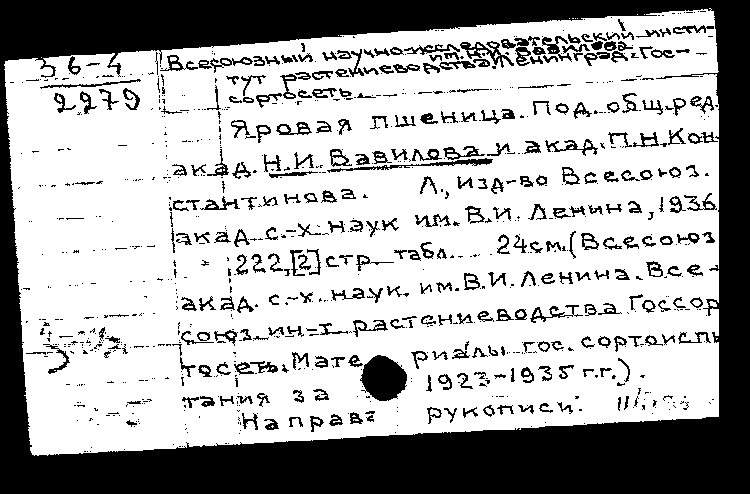 36-4
2279
Всесоюзный научно-исследовательский инсти-
им. Н.И. Вавилова
тут растениеводства. Ленинград. Гос-
сортосеть.
Яровая пшеница. Под. общ. ред.
акад. Н.И. Вавилова и акад. П.Н. Кон-
стантинова. Л., изд-во Всесоюз.
акад. с.-х. наук им. В.И. Ленина, 1936
222,[2] стр. табл. 24см. (Всесоюз
акад. с.-х. наук. им. В.И. Ленина. Все-
союз. ин-т растениеводства Госсор
тосеть. Материалы гос. сортоиспы
тания за 1923-1935 г.г.).
На правах рукописи.